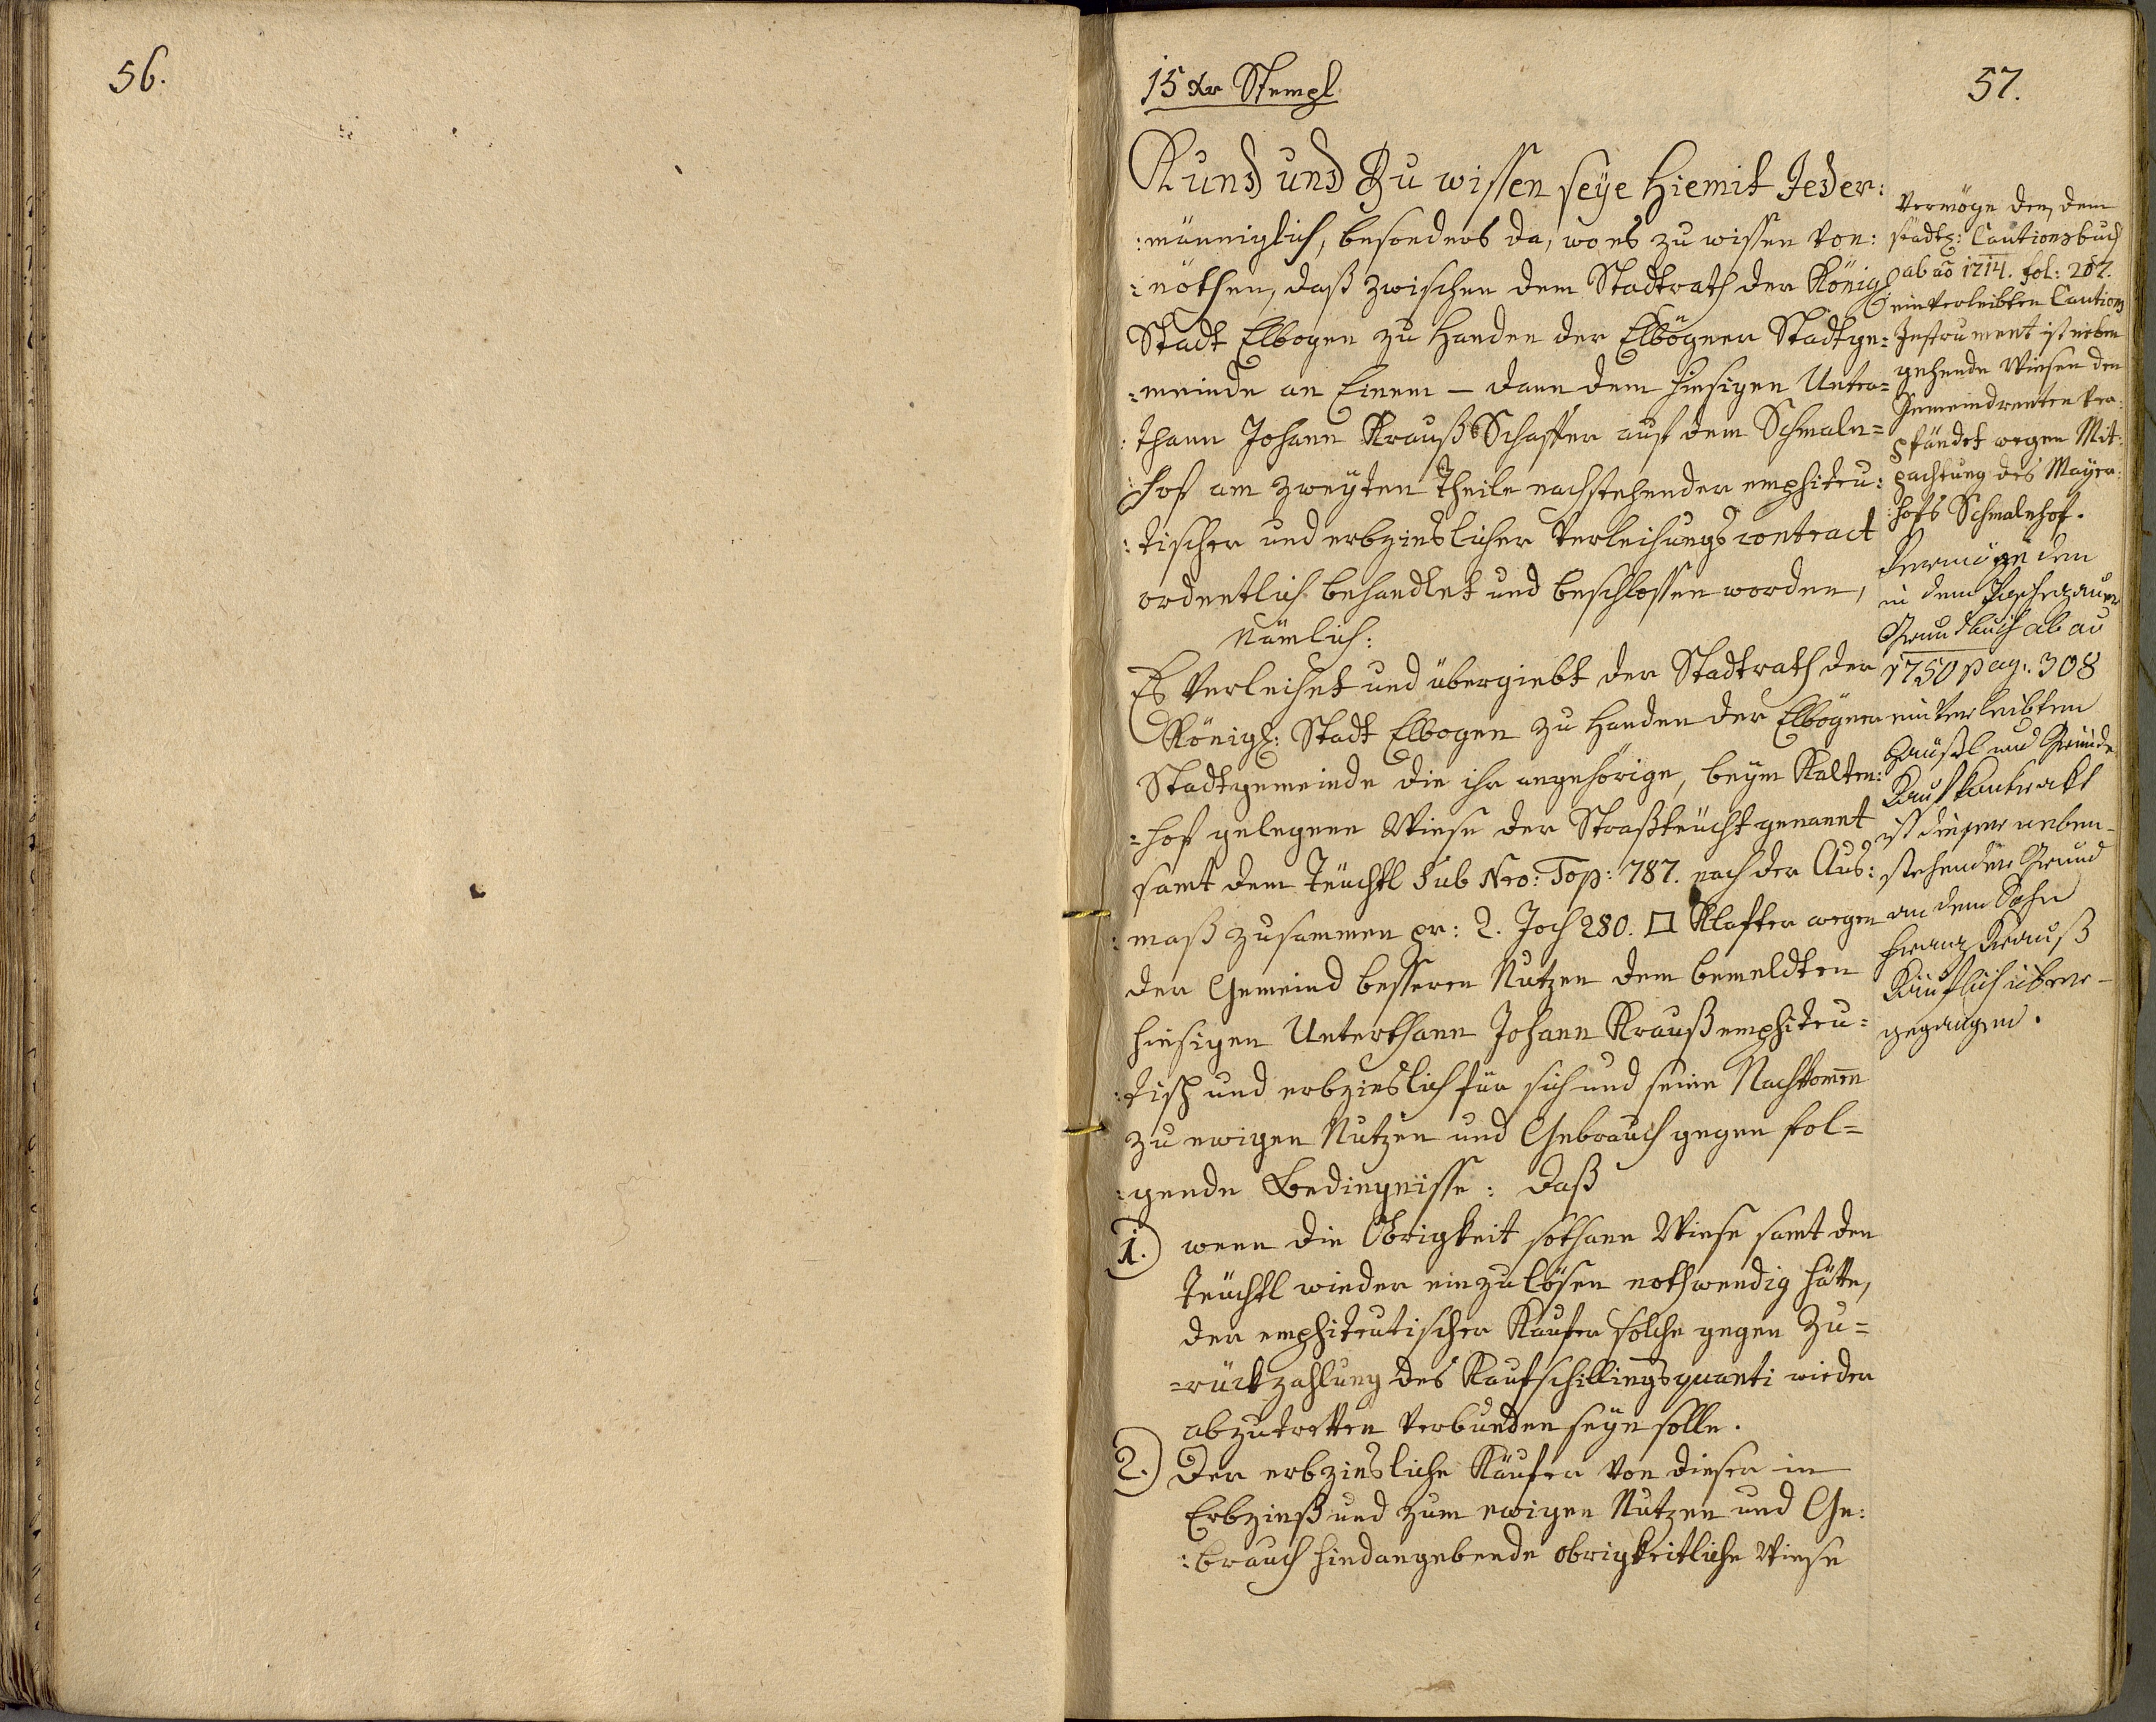 56.
57.
15 Xr Stempl
Kund und Zu wissen seye Hiemit Jeder:
:männiglich, besonders da, wo es zu wissen von:
:nöthen, daß zwischen dem Stadtrath der Königl:
Stadt Elbogen zu Handen der Elbögner Stadtge=
=meinde an Einem – dann dem hiesigen Unter=
:thann Johann Krauß Schaffer auf dem Schmaln=
:hof am zweyten Theile nachstehender emphiteu:
:tischer und erbzinslicher Verleihungs contract
ordentlich behandlet und beschlossen worden,
Nämlich:
Es Verleihet und übergiebt der Stadtrath der
Königl: Stadt Elbogen zu Handen der Elbögner
Stadtgemeinde die ihr angehörige, beym Kalten:
=hof gelegene Wiese der Straßteücht genannt
samt dem Teüchtl Sub Nro: Top: 787. nach der Aus:
:maß zusammen pr: 2. Joch 280. □ Klafter wegen
der Gemeind besseren Nutzen dem bemeldten
hiesigen Unterthann Johann Krauß emphiteu=
:tisch und erbzinslich für sich und seine Nachkommen
zu ewigen Nutzen und Gebrauch gegen fol=
:gende Bedingnisse: Daß
1.) wenn die Obrigkeit sothane Wiese samt den
Teüchtl wieder einzulösen nothwendig hätte,
der emphiteutischer Kaufer solche gegen Zu=
=rückzahlung des Kaufschillingsquanti wieder
abzutretten verbunden seyn solle.
2.) Der erbzinsliche Käufer von dieser in
Erbzinß und zum ewigen Nutzen und Ge:
:brauch hindangebende obrigkeitliche Wiese
Vermöge den, dem
städtl: Cautionsbuch
ab ao 1714. fol: 267.
einverleibten Cautions
Instrument ist neben
gehende Wiesen den
Gemeindrenten ver:
pfändet wegen Mit:
pachtung des Mayer:
:hofs Schmalnhof.
Vermöge den
in dem
Grundbuch ab ao
1750 pag: 308
einverleibten
Häußl und Gründe
Kauf Kontrakt
ist dieser neben-
stehender Grund
an dem Sohn
Franz Krauß
Käuflich über-
gegangen.